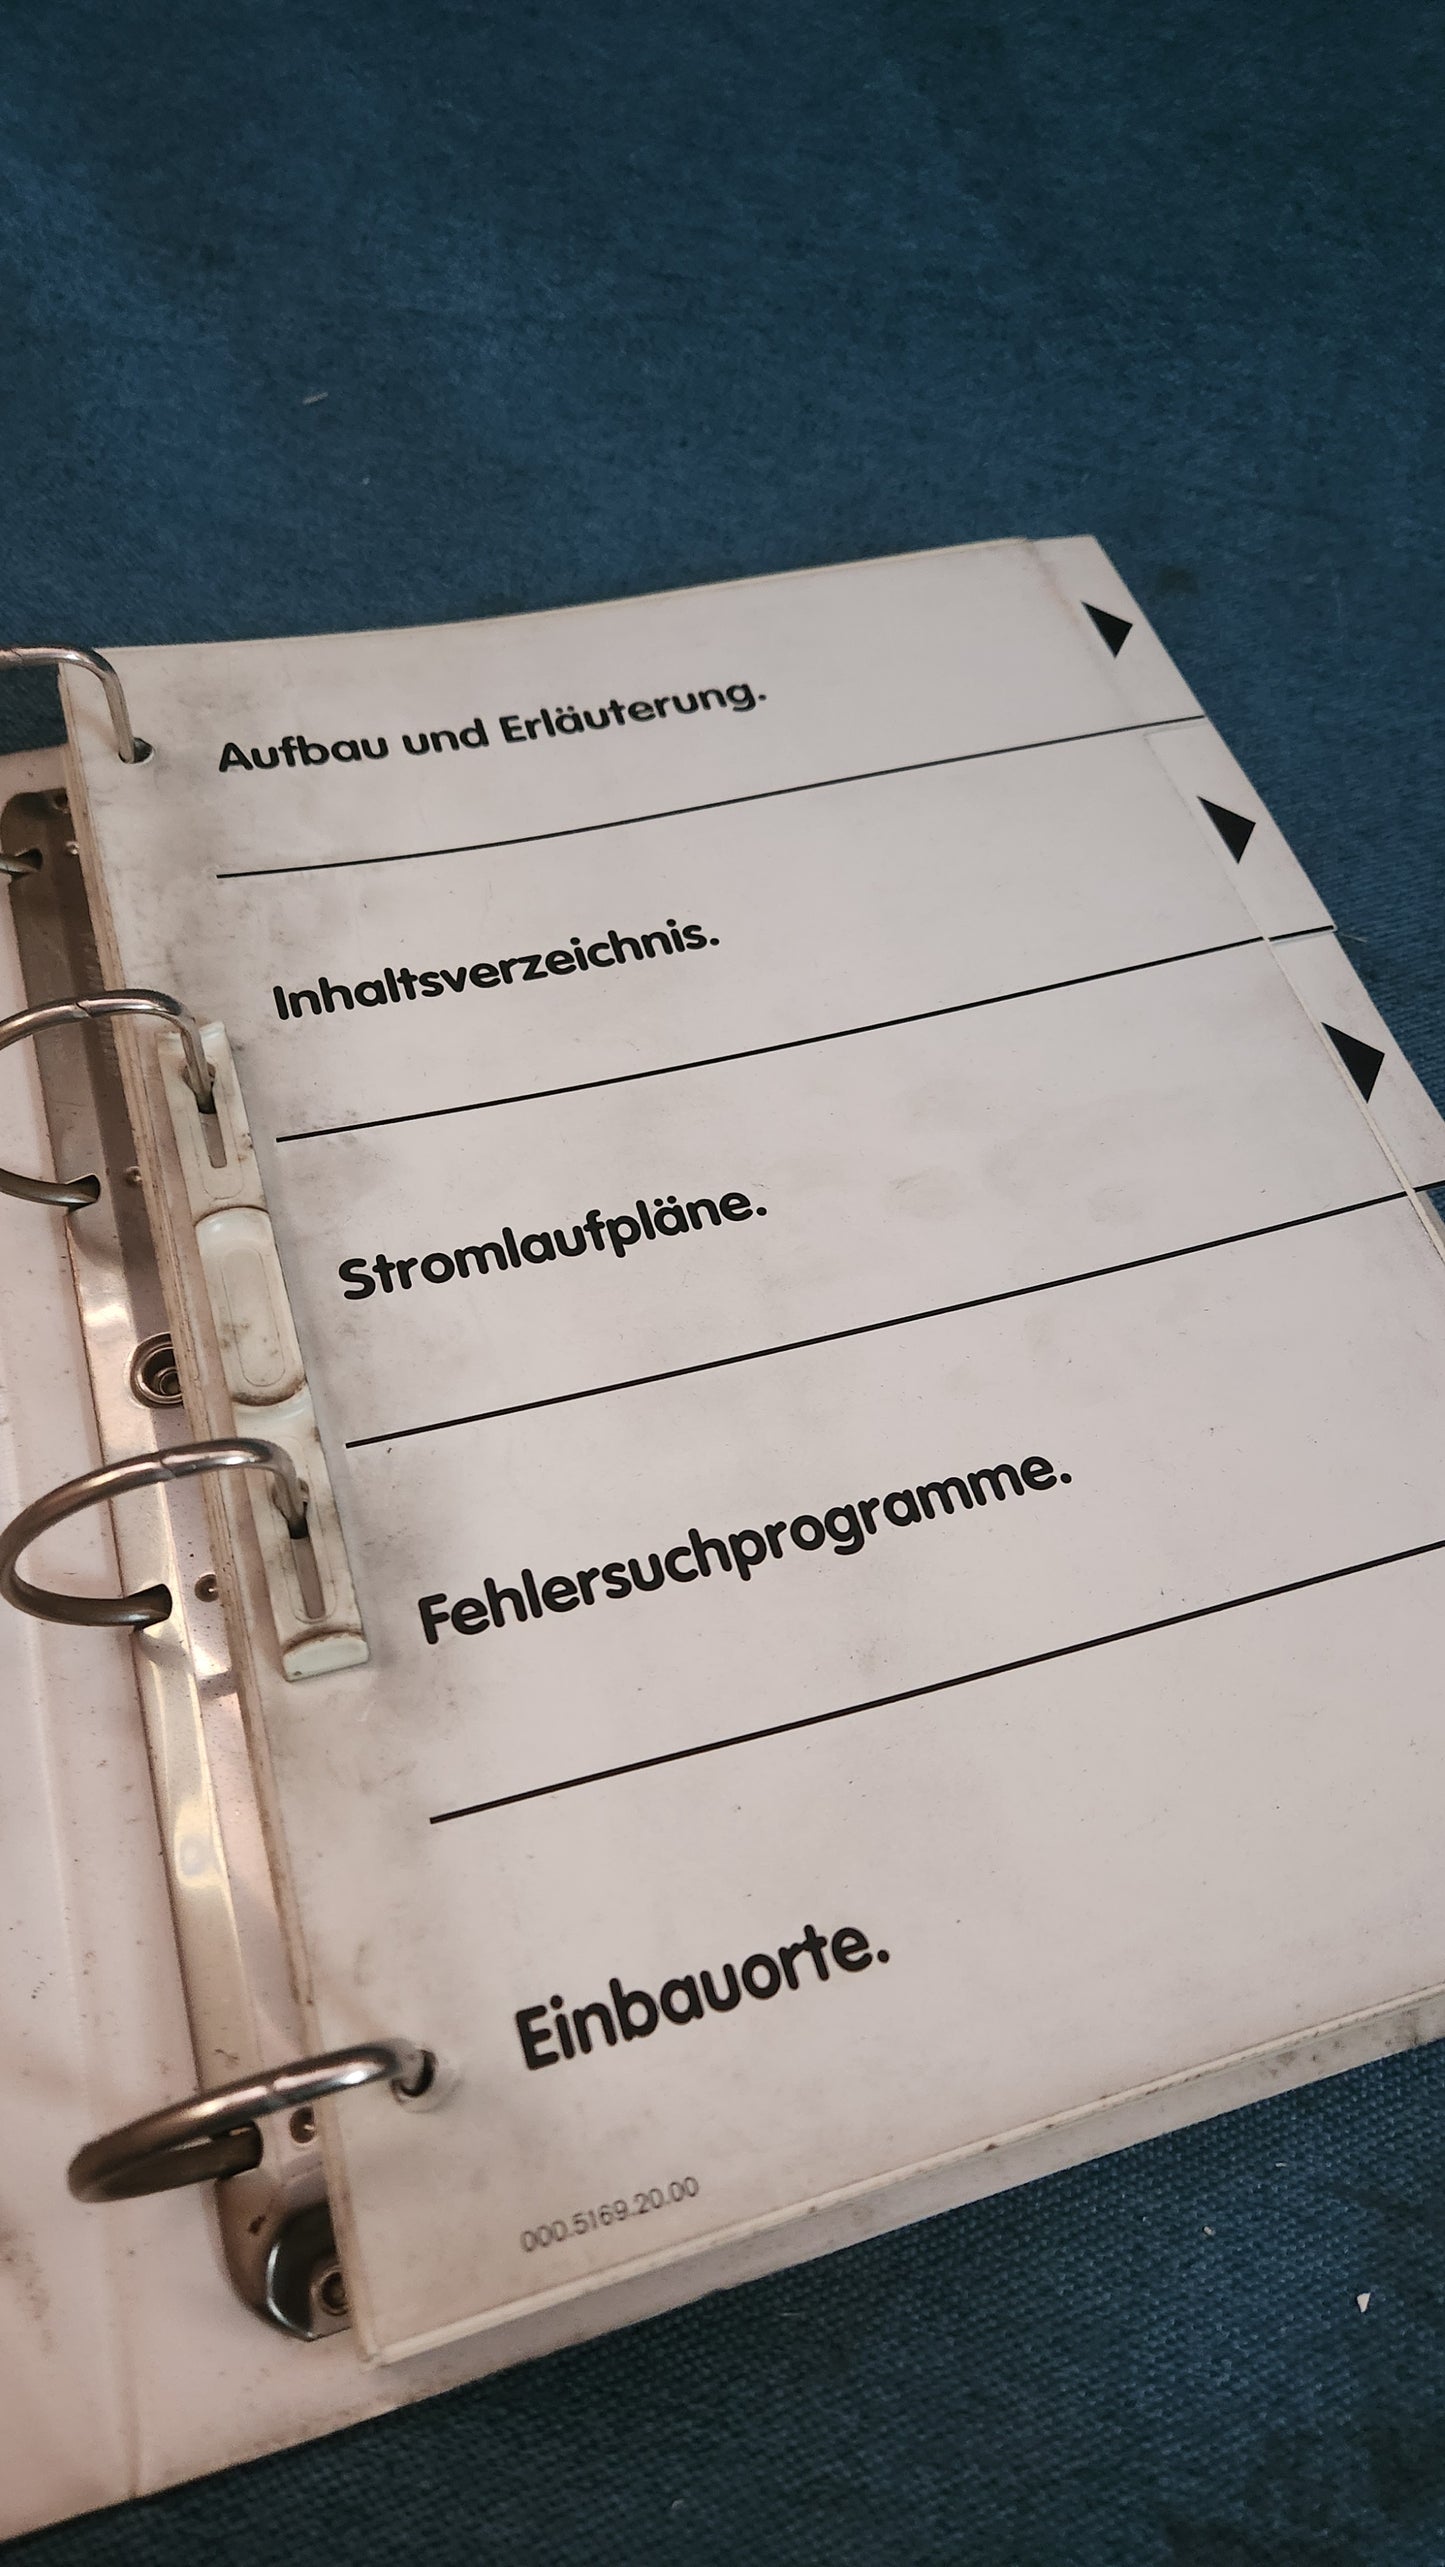 Aufbau und Erläuterung.
Inhaltsverzeichnis.
Stromlaufpläne.
Fehlersuchprogramme.
Einbauorte.
000.5169.20.00